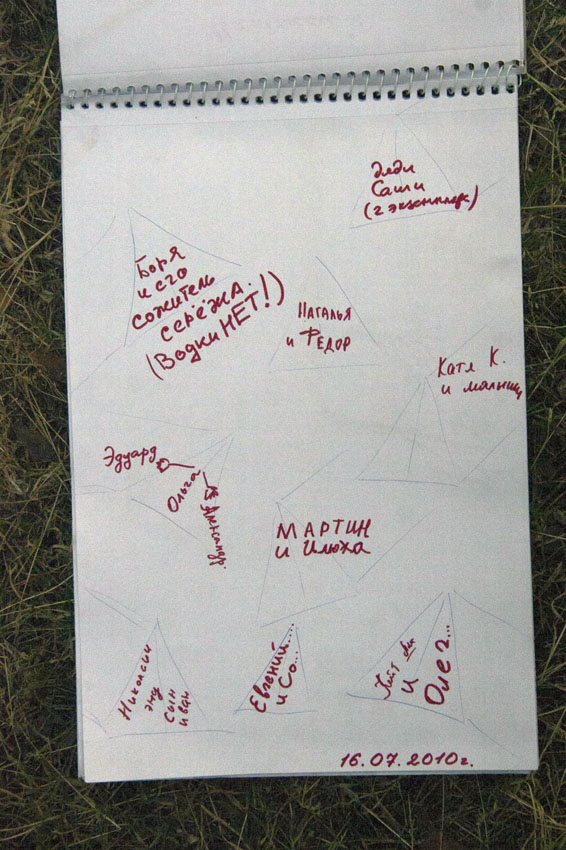 Дяди
Саши
(2 экземпляра)
Боря
и его
сожитель
СЕРЁЖА.
(Водки НЕТ!)
НАТАЛЬЯ
и ФЁДОР
Катя К.
и малыши
Эдуард
Ольга
Александр
МАРТИН
и Илюха
Николай
сын
Иван
Евгений....
и Со...
и
Олег...
16.07.2010г.